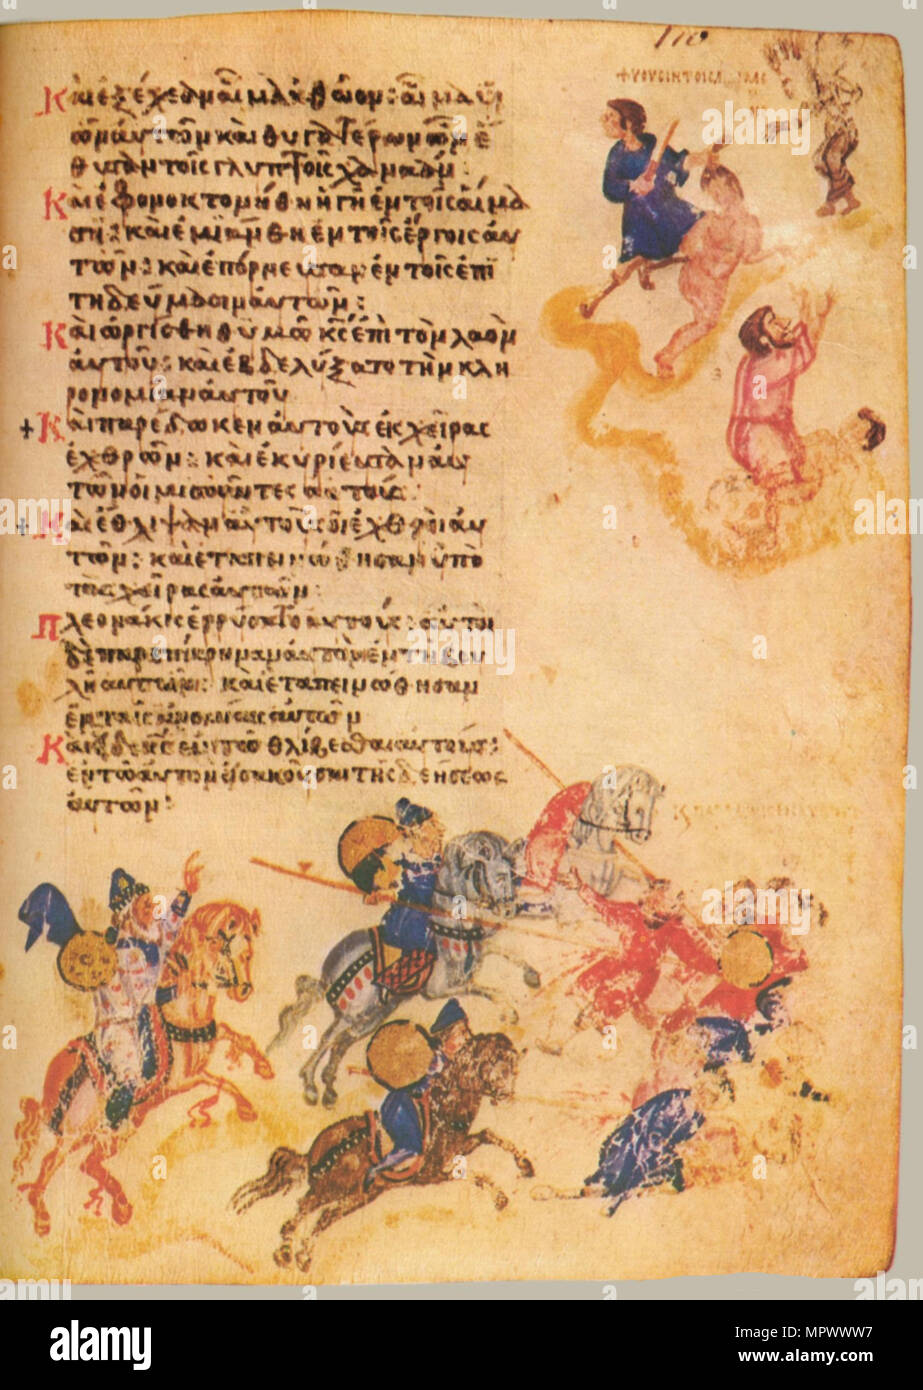 Καὶ ἐξέχεον αἷμα ἀθῶον: αἷμα υἱ
ῶν αὐτῶν καὶ θυγατέρων ὧν ἔ
θυσαν τοῖς γλυπτοῖς χαναάν:
Καὶ ἐφονοκτονήθη ἡ γῆ ἐν τοῖς αἵμα
σι: καὶ ἐμιάνθη ἐν τοῖς ἔργοις αὐ
τῶν: καὶ ἐπόρνευσαν ἐν τοῖς ἐπι
τηδεύμασιν αὐτῶν:
Καὶ ὠργίσθη θυμῶ κς ἐπὶ τὸν λαὸν
αὐτοῦ: καὶ ἐβδελύξατο τὴν κλη
ρονομίαν αὐτοῦ
Καὶ παρέδωκεν αὐτοὺς εἰς χεῖρας
ἐχθρῶν: καὶ ἐκυρίευσαν αὐ
τῶν οἱ μισοῦντες αὐτούς:
Καὶ ἔθλιψαν αὐτοὺς οἱ ἐχθροὶ αὐ
τῶν: καὶ ἐταπεινώθησαν ὑπὸ
τὰς χεῖρας αὐτῶν:
Πλεονάκις ἐρρύσατο αὐτούς: αὐτοὶ
δὲ παρεπίκραναν αὐτὸν ἐν τῆ βου
λῆ αὐτῶν: καὶ ἐταπεινώθησαν
ἐν ταῖς ἀνομίαις αὐτῶν
Καὶ ἐν τῶ θλίβεσθαι αὐτούς:
ἐν τῶ αὐτὸν εἰσακοῦσαι τῆς δεήσεως
αὐτῶν:
alamy
Image ID: MPWWW7
www.alamy.com